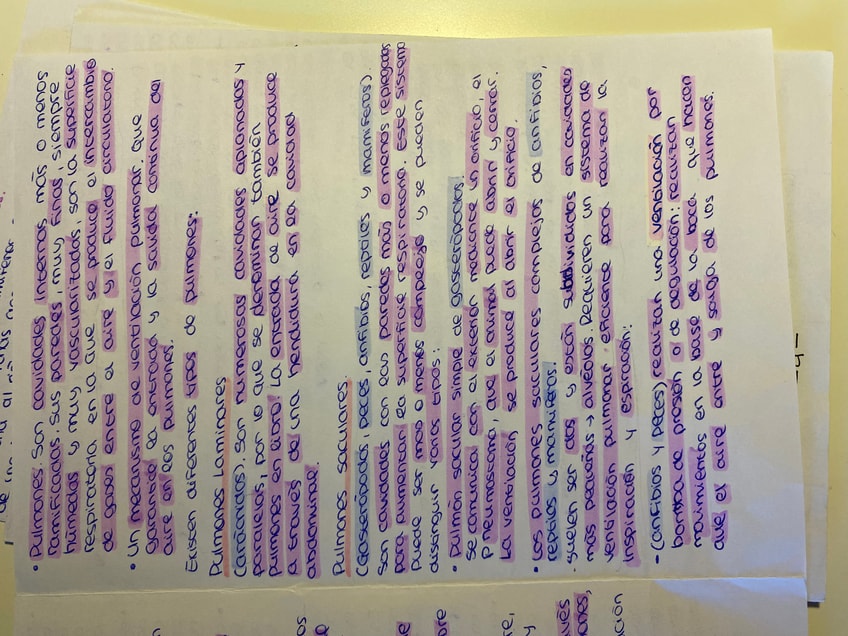 • Pulmones. Son cavidades internas más o menos
ramificadas. Sus paredes, muy finas, siempre
húmedas y muy vascularizadas, son la superficie
respiratoria en la que se produce el intercambio
de gases entre el aire y el fluido circulatorio.
• Un mecanismo de ventilación pulmonar que
garantice la entrada y la salida continua del
aire en los pulmones.
Existen diferentes tipos de pulmones:
Pulmones Laminares
(arácnidos). Son numerosas cavidades aplanadas y
paralelas, por lo que se denominan también
pulmones en libro. La entrada de aire se produce
a través de una hendidura en la cavidad
abdominal.
Pulmones saculares.
(Gasterópodos, peces, anfibios, reptiles y mamíferos).
Son cavidades con las paredes más o menos replegadas
para aumentar la superficie respiratoria. Este sistema
puede ser más o menos complejo y se pueden
distinguir varios tipos:
• Pulmón sacular simple de gasterópodos.
Se comunica con el exterior mediante un orificio, el
pneumostoma, que el animal puede abrir y cerrar.
La ventilación se produce al abrir el orificio.
• Los pulmones saculares complejos de anfibios,
reptiles y mamíferos.
- suelen ser dos y están subdivididos en cavidades
más pequeñas → alvéolos. Requieren un sistema de
ventilación pulmonar eficiente para realizar la
inspiración y espiración:
- (anfibios y peces) realizan una ventilación por
bomba de presión o de deglución: realizan
movimientos en la base de la boca que hacen
que el aire entre y salga de los pulmones.